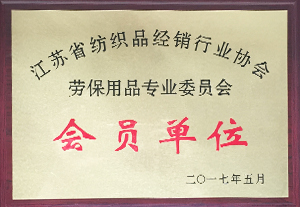 江苏省纺织品经销行业协会
劳保用品专业委员会
会员单位
二〇一七年五月